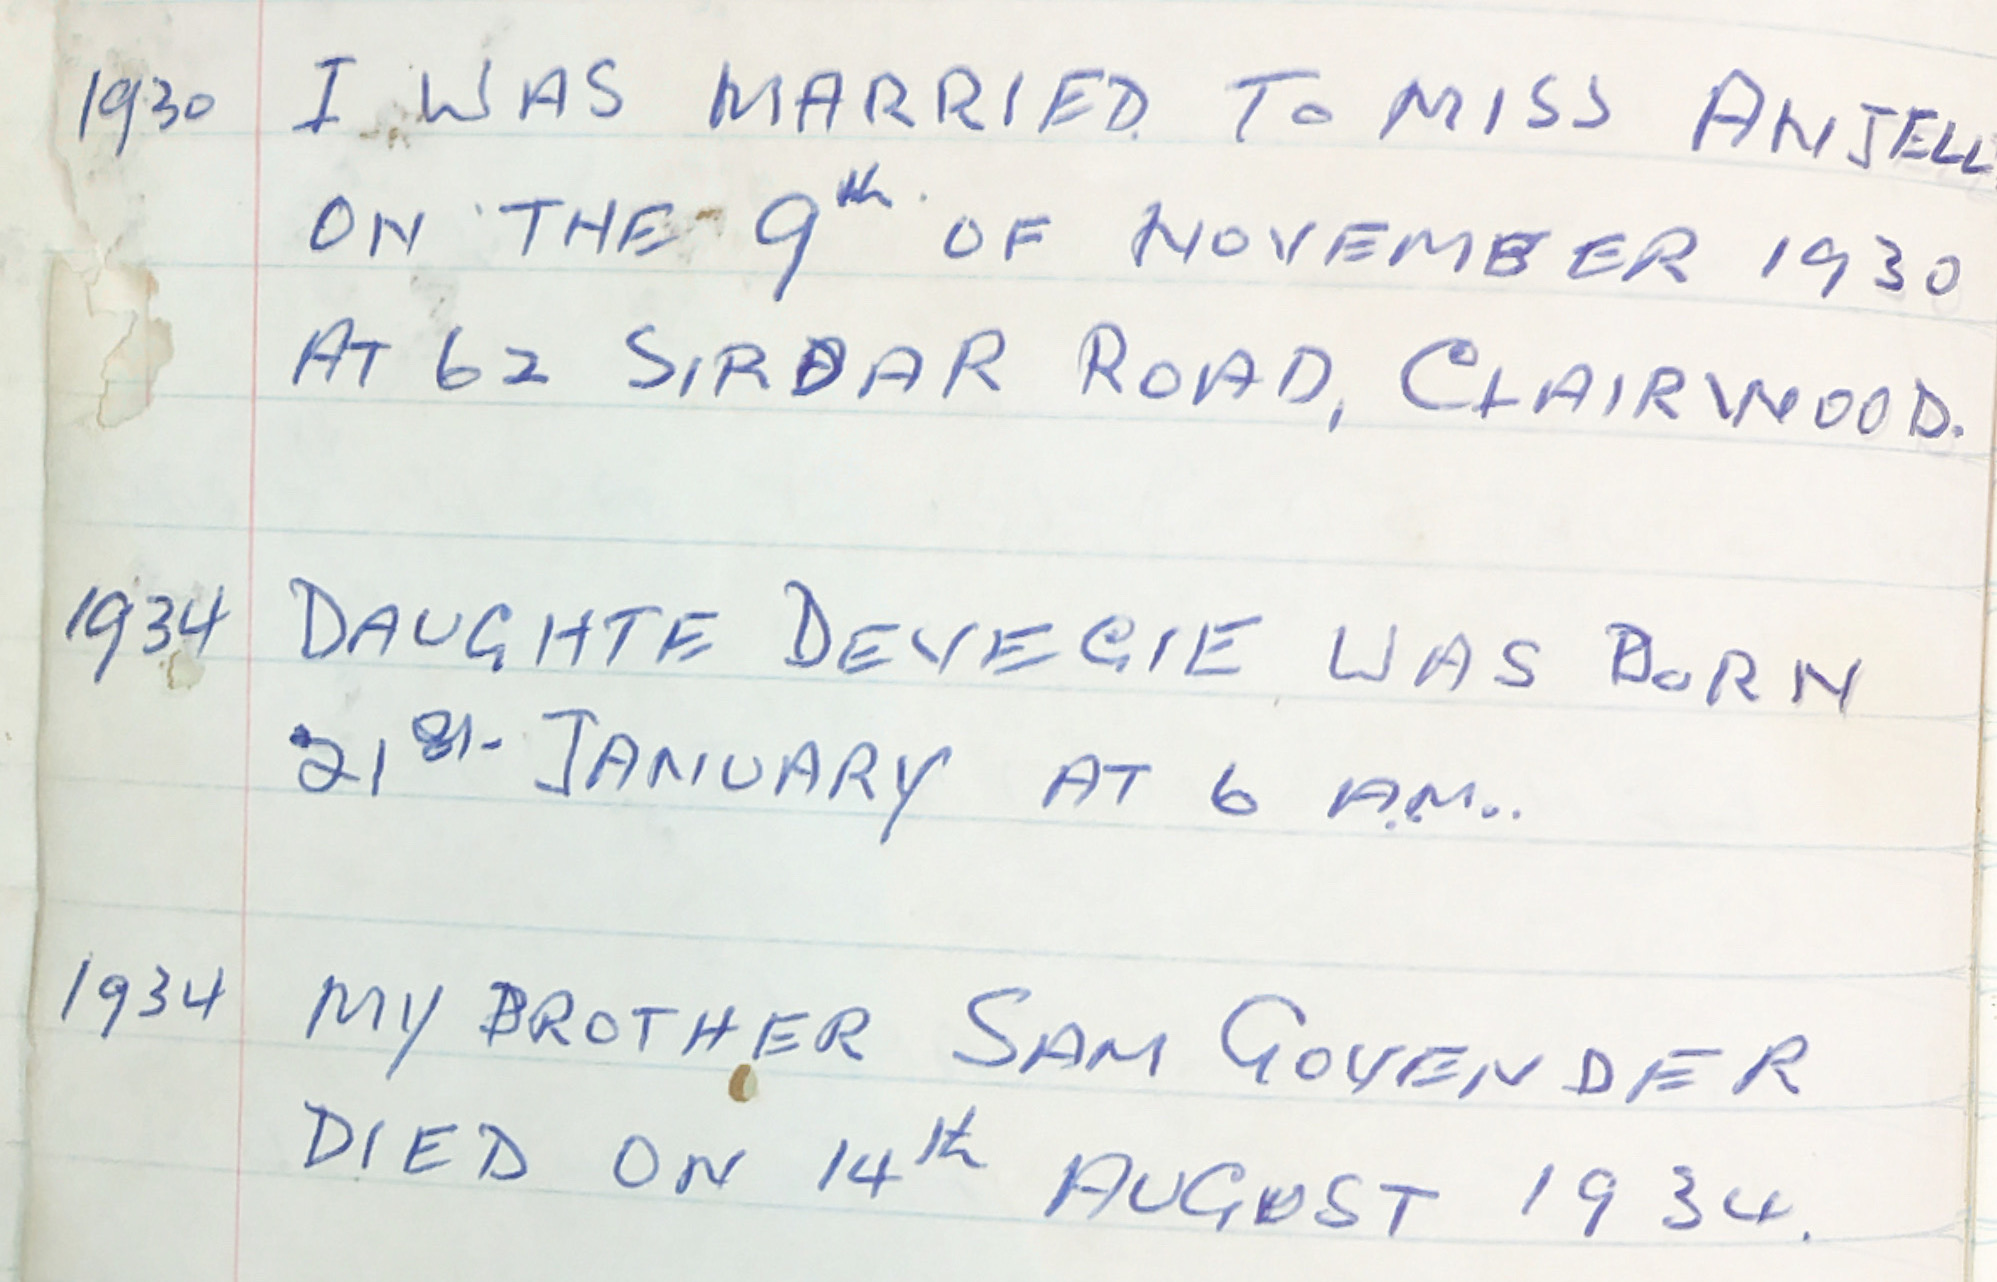 1930 I WAS MARRIED TO MISS ANJELL
ON THE 9th. OF NOVEMBER 1930
AT 62 SIRDAR ROAD, CLAIRWOOD.
1934 DAUGHTE DEVEGIE WAS BORN
21st. JANUARY AT 6 A.M..
1934 MY BROTHER SAM GOVENDER
DIED ON 14th AUGUST 1934.